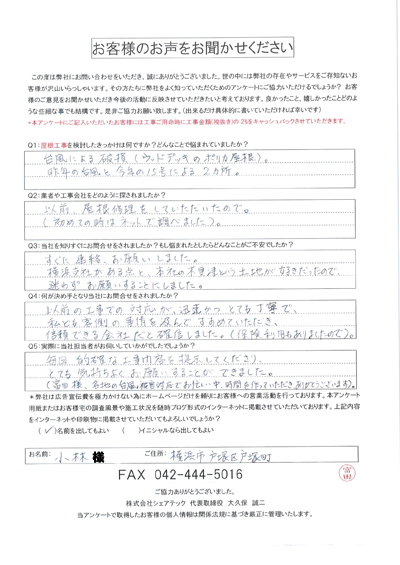 お客様のお声をお聞かせください
この度は弊社にお問い合わせをいただき、誠にありがとうございました。世の中には弊社の存在やサービスをご存知ないお
客様が沢山いらっしゃいます。その方たちに弊社をよく知っていただくためのアンケートにご協力いただけるでしょうか? お
客様のご意見をお聞かせいただき今後の活動に反映させていただきたいと考えております。良かったこと、嬉しかったことどのよ
うな些細な事でも結構です。是非ご協力お願い致します。(出来るだけ具体的に書いていただければ幸いです)
*本アンケートにご記入いただいたお客様には工事ご用命時に工事金額(税抜き)の2%をキャッシュバックさせていただきます。
Q1:屋根工事を検討したきっかけは何ですか?どんなことで悩まれていましたか?
台風による破損(ウッドデッキのポリカ屋根)。
昨年の台風と今年の15号による2カ所。
Q2:業者や工事会社をどのように探されましたか?
以前、屋根修理をしていただいたので。
(初めての時はネットで調べました)。
Q3:当社を知りすぐにお問合せをされましたか?もし悩まれたとしたらどんなことがご不安でしたか?
すぐに連絡、お願いしました。
横浜支社がある点と、本社の木更津という土地が好きだったので、
迷わずお願いすることにしました。
Q4:何が決め手となり当社にお問合せをされましたか?
以前の工事での対応が、迅速かつとても丁寧で、
私ども客側の事情を汲んですすめていただき、
信頼できる会社だと確信しました。(保険利用もありましたので)。
Q5:実際に当社担当者がお伺いしていかがでしたでしょうか?
毎回、的確な工事内容を提示してくださり、
とても気持ちよくお願いすることができました。
(富田様、各地の台風被害対応でお忙しい中、時間を作っていただきありがとうございます)。
*弊社は広告宣伝費を極力かけない為にホームページだけを頼りにお客様への営業活動を行っております。本アンケート
用紙またはお客様宅の調査風景や施工状況を随時ブログ形式のインターネットに掲載させていただいております。上記内容
をインターネットや印刷物に掲載させていただいてもよろしいでしょうか?
(✓)名前を出してもよい ( )イニシャルなら出してもよい
お名前: 小林 様 ご住所: 横浜市戸塚区戸塚町
FAX 042-444-5016
富田
ご協力ありがとうございました。
株式会社シェアテック 代表取締役 大久保 誠二
当アンケートで取得したお客様の個人情報は関係法規に基づき厳正に管理いたします。